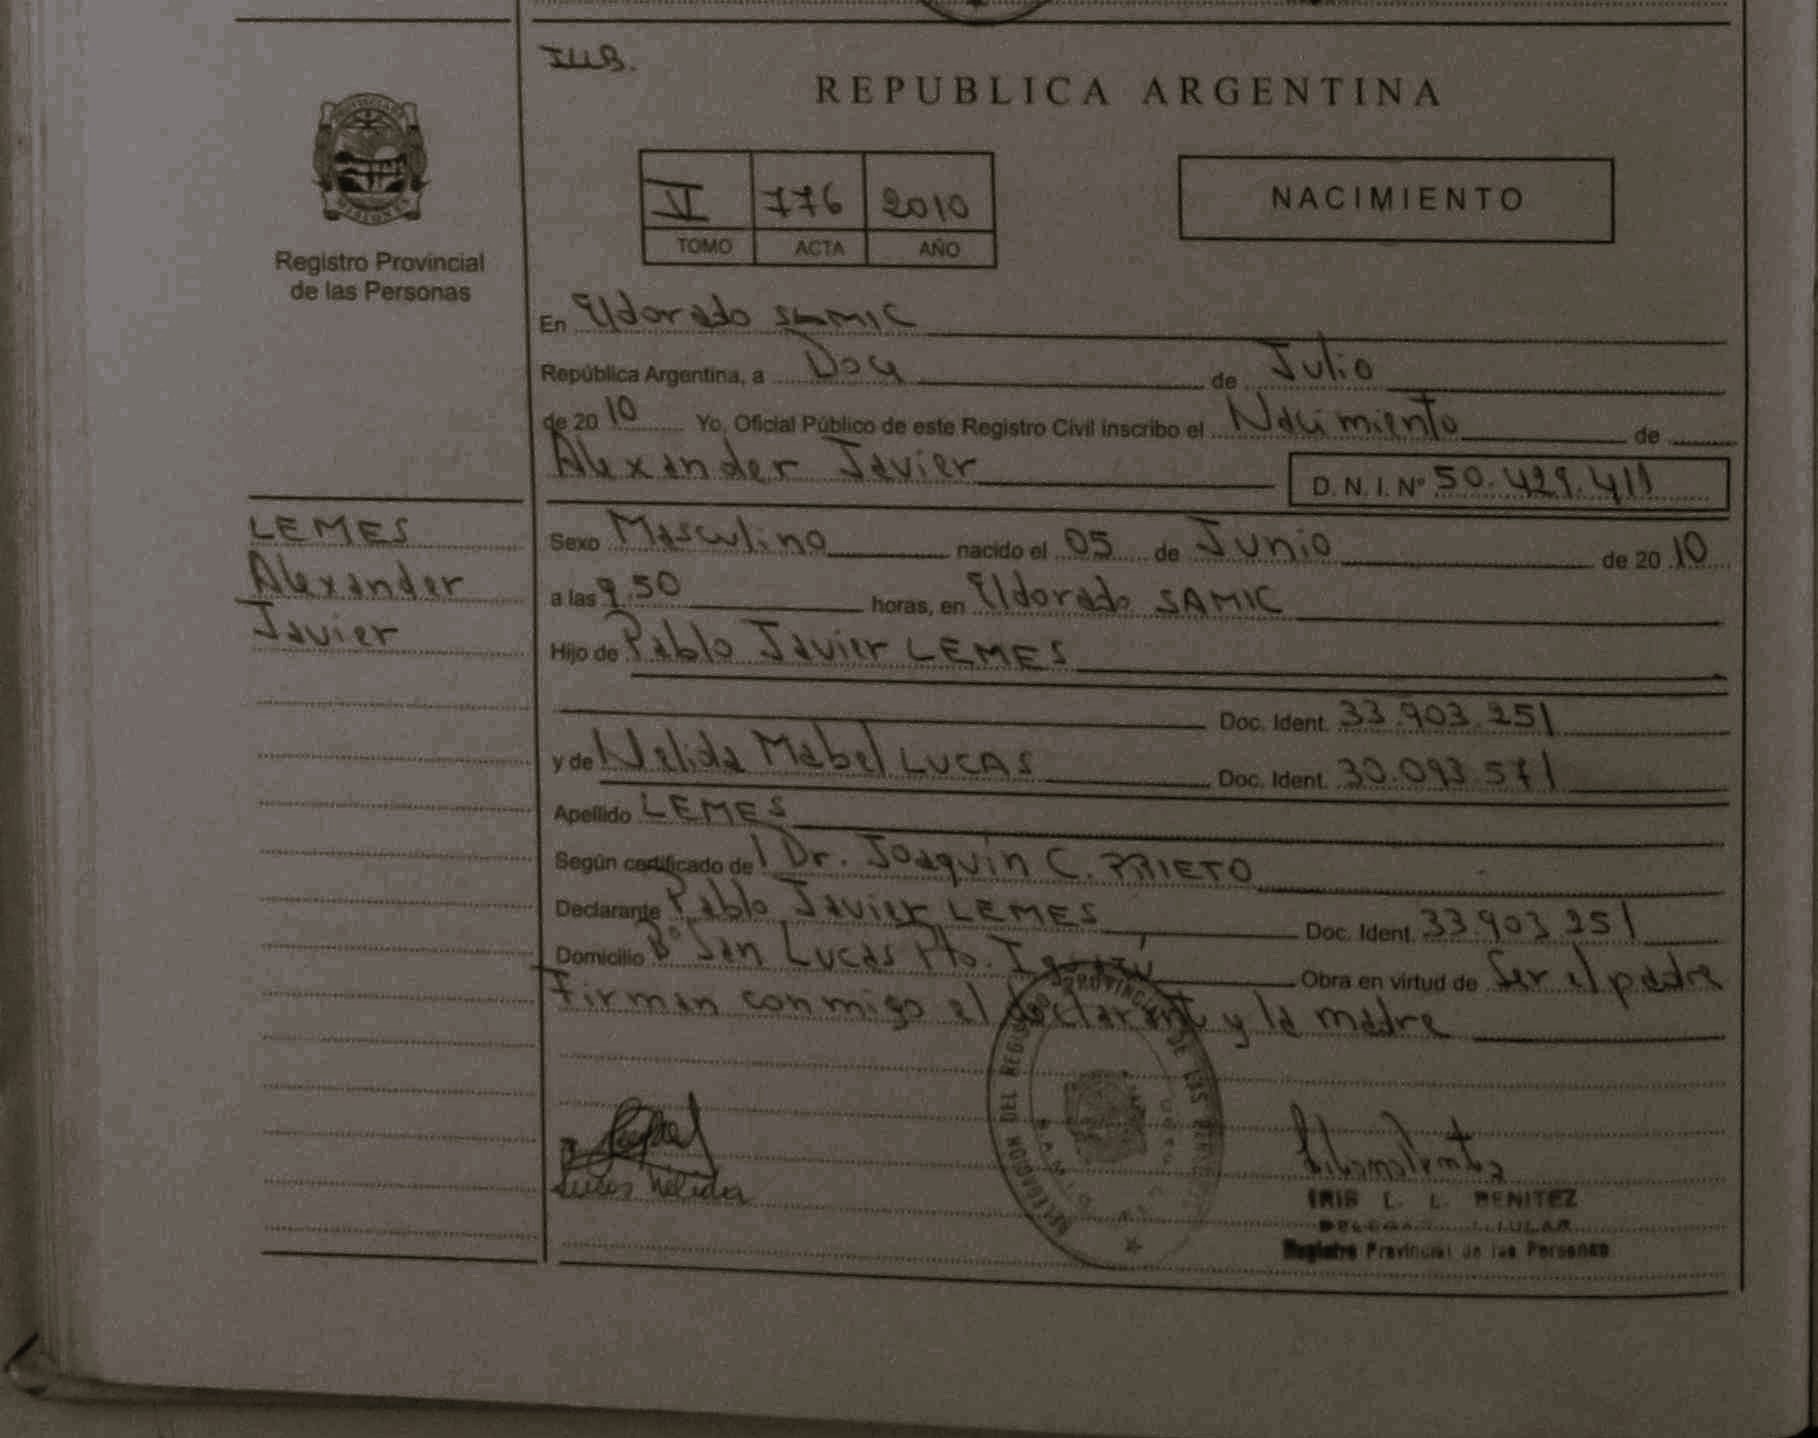 IUB.
REPUBLICA ARGENTINA
PROVINCIA
MISIONES
Registro Provincial
de las Personas
776 2010
TOMO ACTA AÑO
NACIMIENTO
En Eldorado SAMIC
República Argentina, a Doce de Julio
de 20 10 Yo, Oficial Público de este Registro Civil inscribo el Nacimiento de
Alexander Javier D. N. I. Nº 50.429.411
LEMES
Alexander
Javier
Sexo Masculino nacido el 05 de Junio de 20 10
a las 9.50 horas, en Eldorado SAMIC
Hijo de Pablo Javier LEMES
Doc. Ident. 33.903.251
y de Nelida Mabel LUCAS Doc. Ident. 30.093.571
Apellido LEMES
Según certificado de l Dr. Joaquín C. PRIETO
Declarante Pablo Javier LEMES Doc. Ident. 33.903.251
Domicilio Bº San Lucas Pto. Iguazú Obra en virtud de Ser el padre
Firman conmigo el declarante y la madre
DELEGACION DEL REGISTRO PROVINCIAL DE LAS
Lucas Nelida
IRIS L. L. BENITEZ
Registro Provincial de las Personas